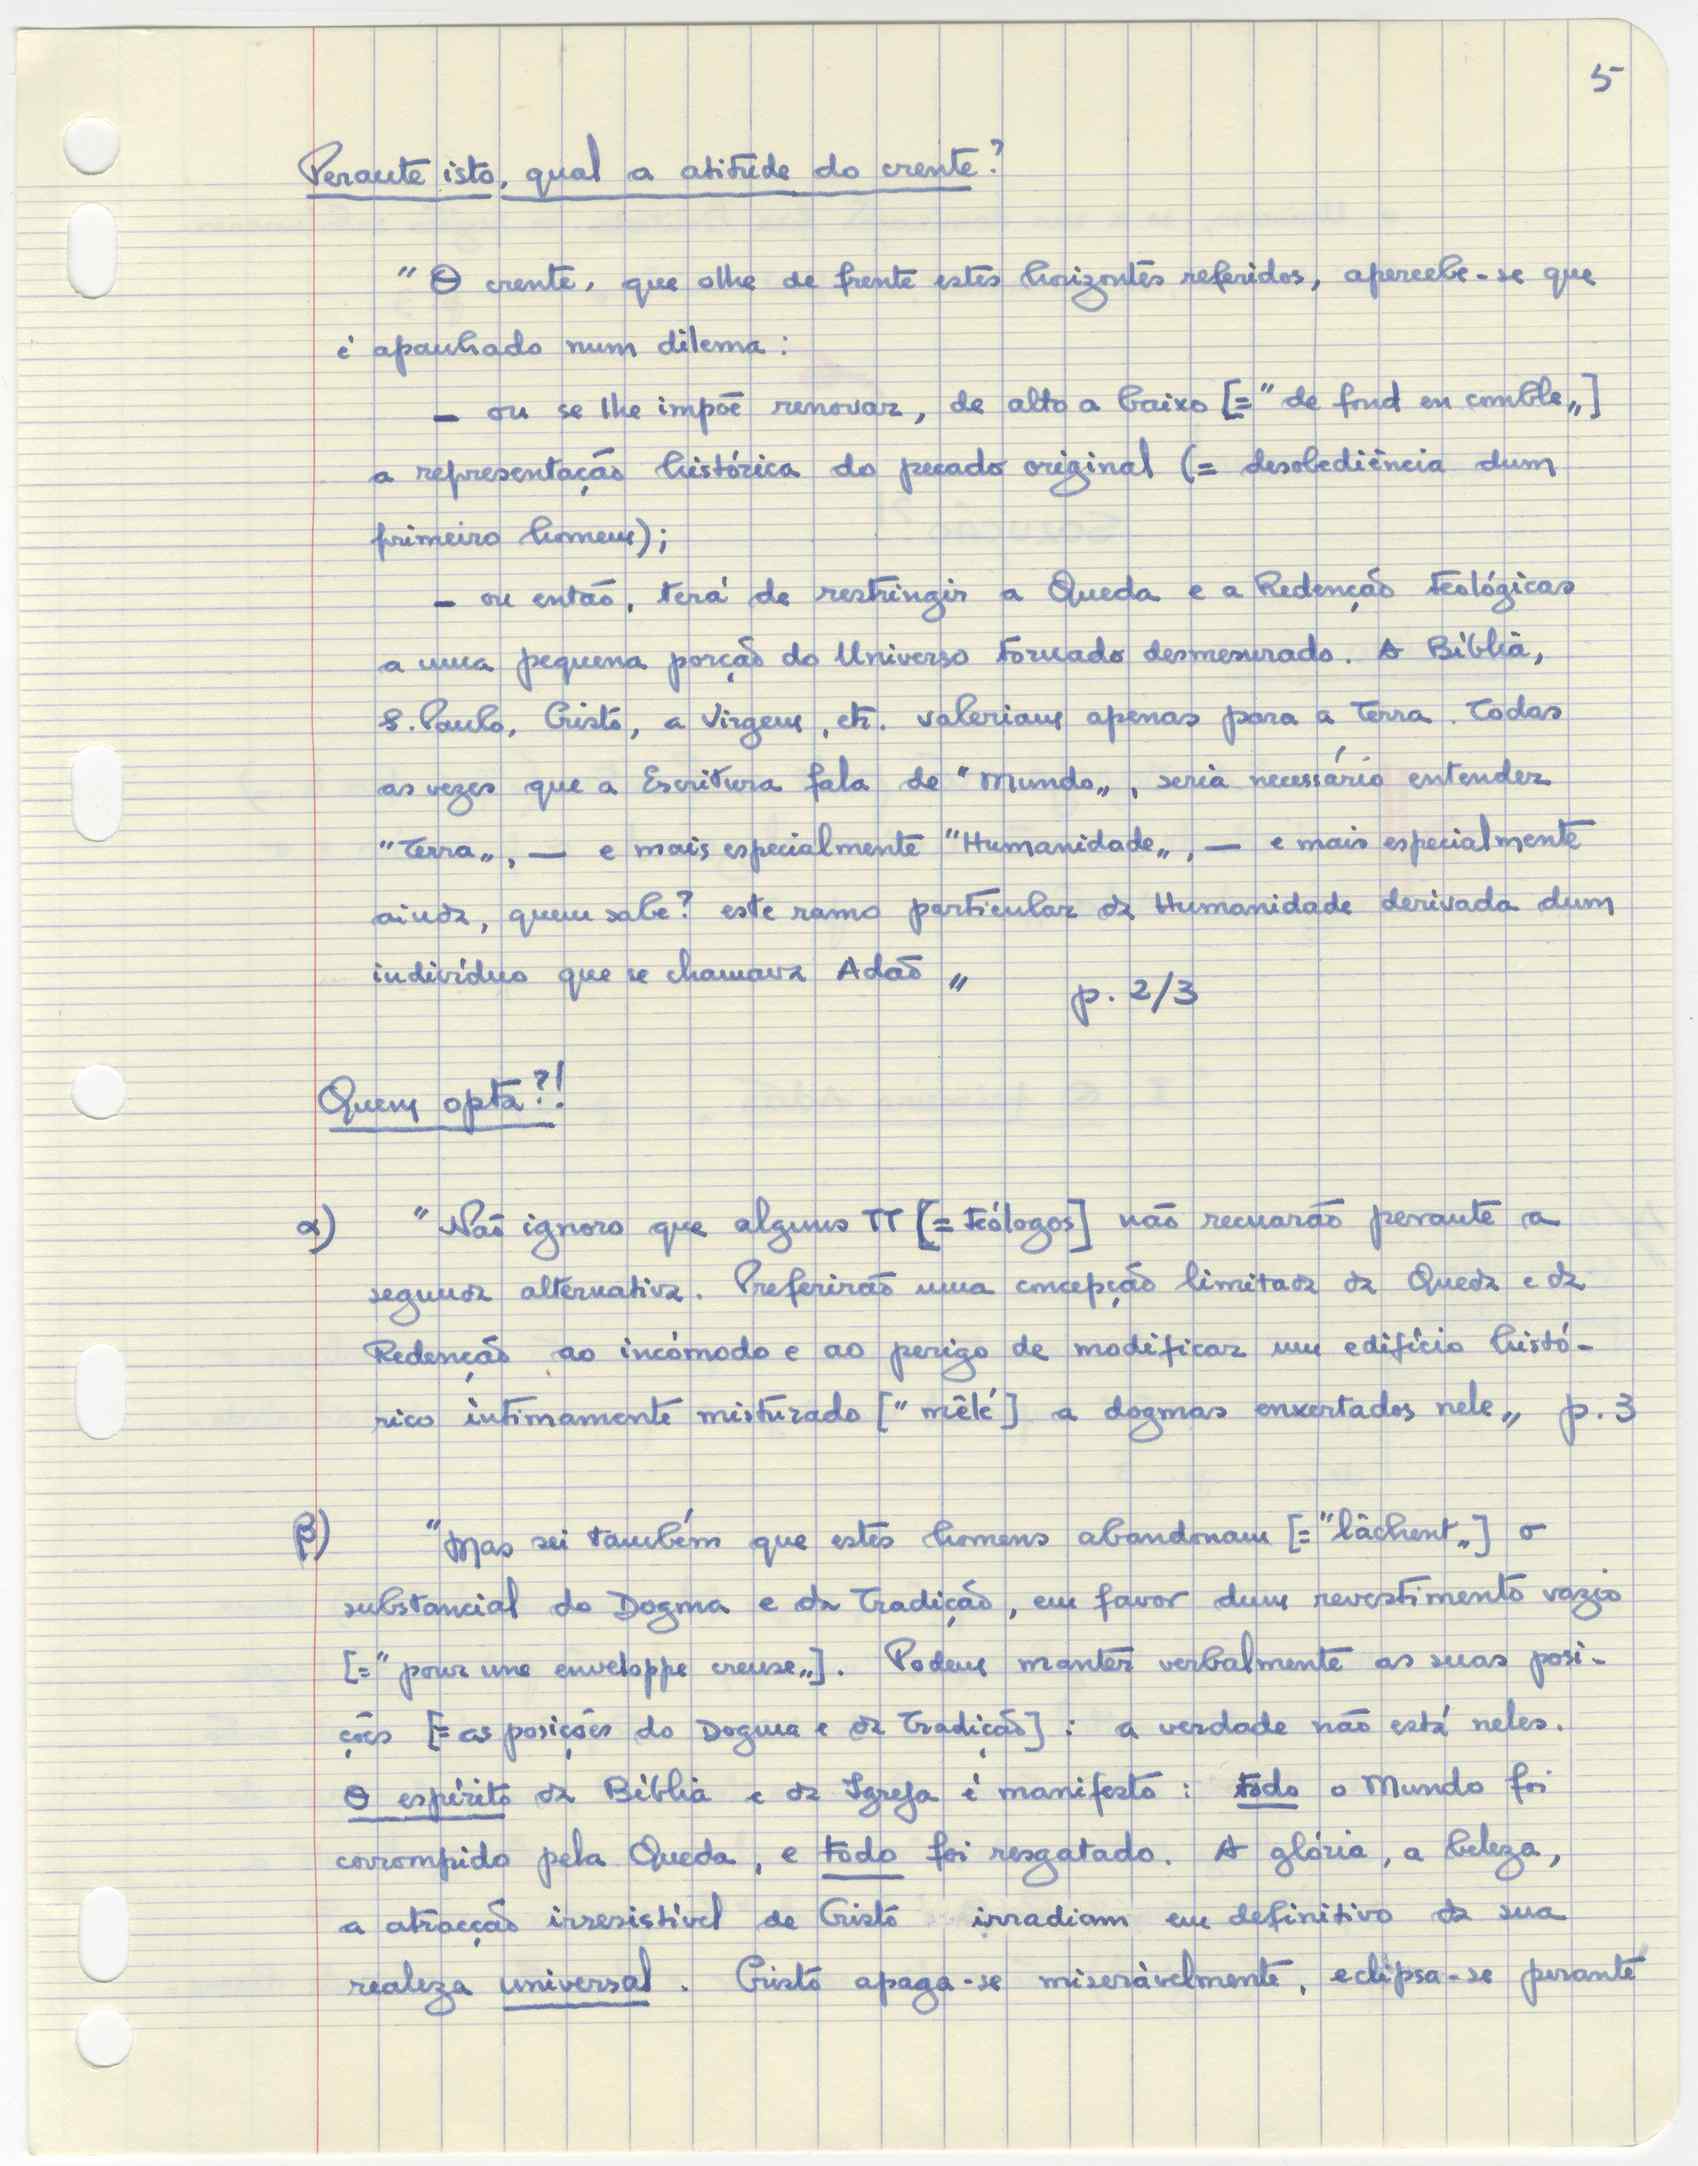 5
Perante isto, qual a atitude do crente?
"O crente, que olhe de frente estes horizontes referidos, apercebe-se que
é apanhado num dilema:
— ou se lhe impõe renovar, de alto a baixo [= "de fond en comble„]
a representação histórica do pecado original (= desobediência dum
primeiro homem);
— ou então, terá de restringir a Queda e a Redenção teológicas
a uma pequena porção do Universo tornado desmesurado. A Bíblia,
S. Paulo, Cristo, a Virgem, etc. valeriam apenas para a Terra. Todas
as vezes que a Escritura fala de "Mundo„, seria necessário entender
"Terra„, — e mais especialmente "Humanidade„, — e mais especialmente
ainda, quem sabe? este ramo particular da Humanidade derivada dum
indivíduo que se chamava Adão„ p. 2/3
Quem opta?!
α) "Não ignoro que alguns TT [= teólogos] não recuarão perante a
segunda alternativa. Preferirão uma concepção limitada da Queda e da
Redenção ao incómodo e ao perigo de modificar um edifício histó-
rico intimamente misturado ["mêlé] a dogmas enxertados nele„ p. 3
β) "Mas sei também que estes homens abandonam [= "lâchent„] o
substancial do Dogma e da Tradição, em favor dum revestimento vazio
[= "pour une enveloppe creuse„]. Podem manter verbalmente as suas posi-
ções [= as posições do Dogma e da Tradição]: a verdade não está neles.
O espírito da Bíblia e da Igreja é manifesto: todo o Mundo foi
corrompido pela Queda, e todo foi resgatado. A glória, a beleza,
a atracção irresistível de Cristo irradiam em definitivo da sua
realeza universal. Cristo apaga-se miseràvelmente, eclipsa-se perante